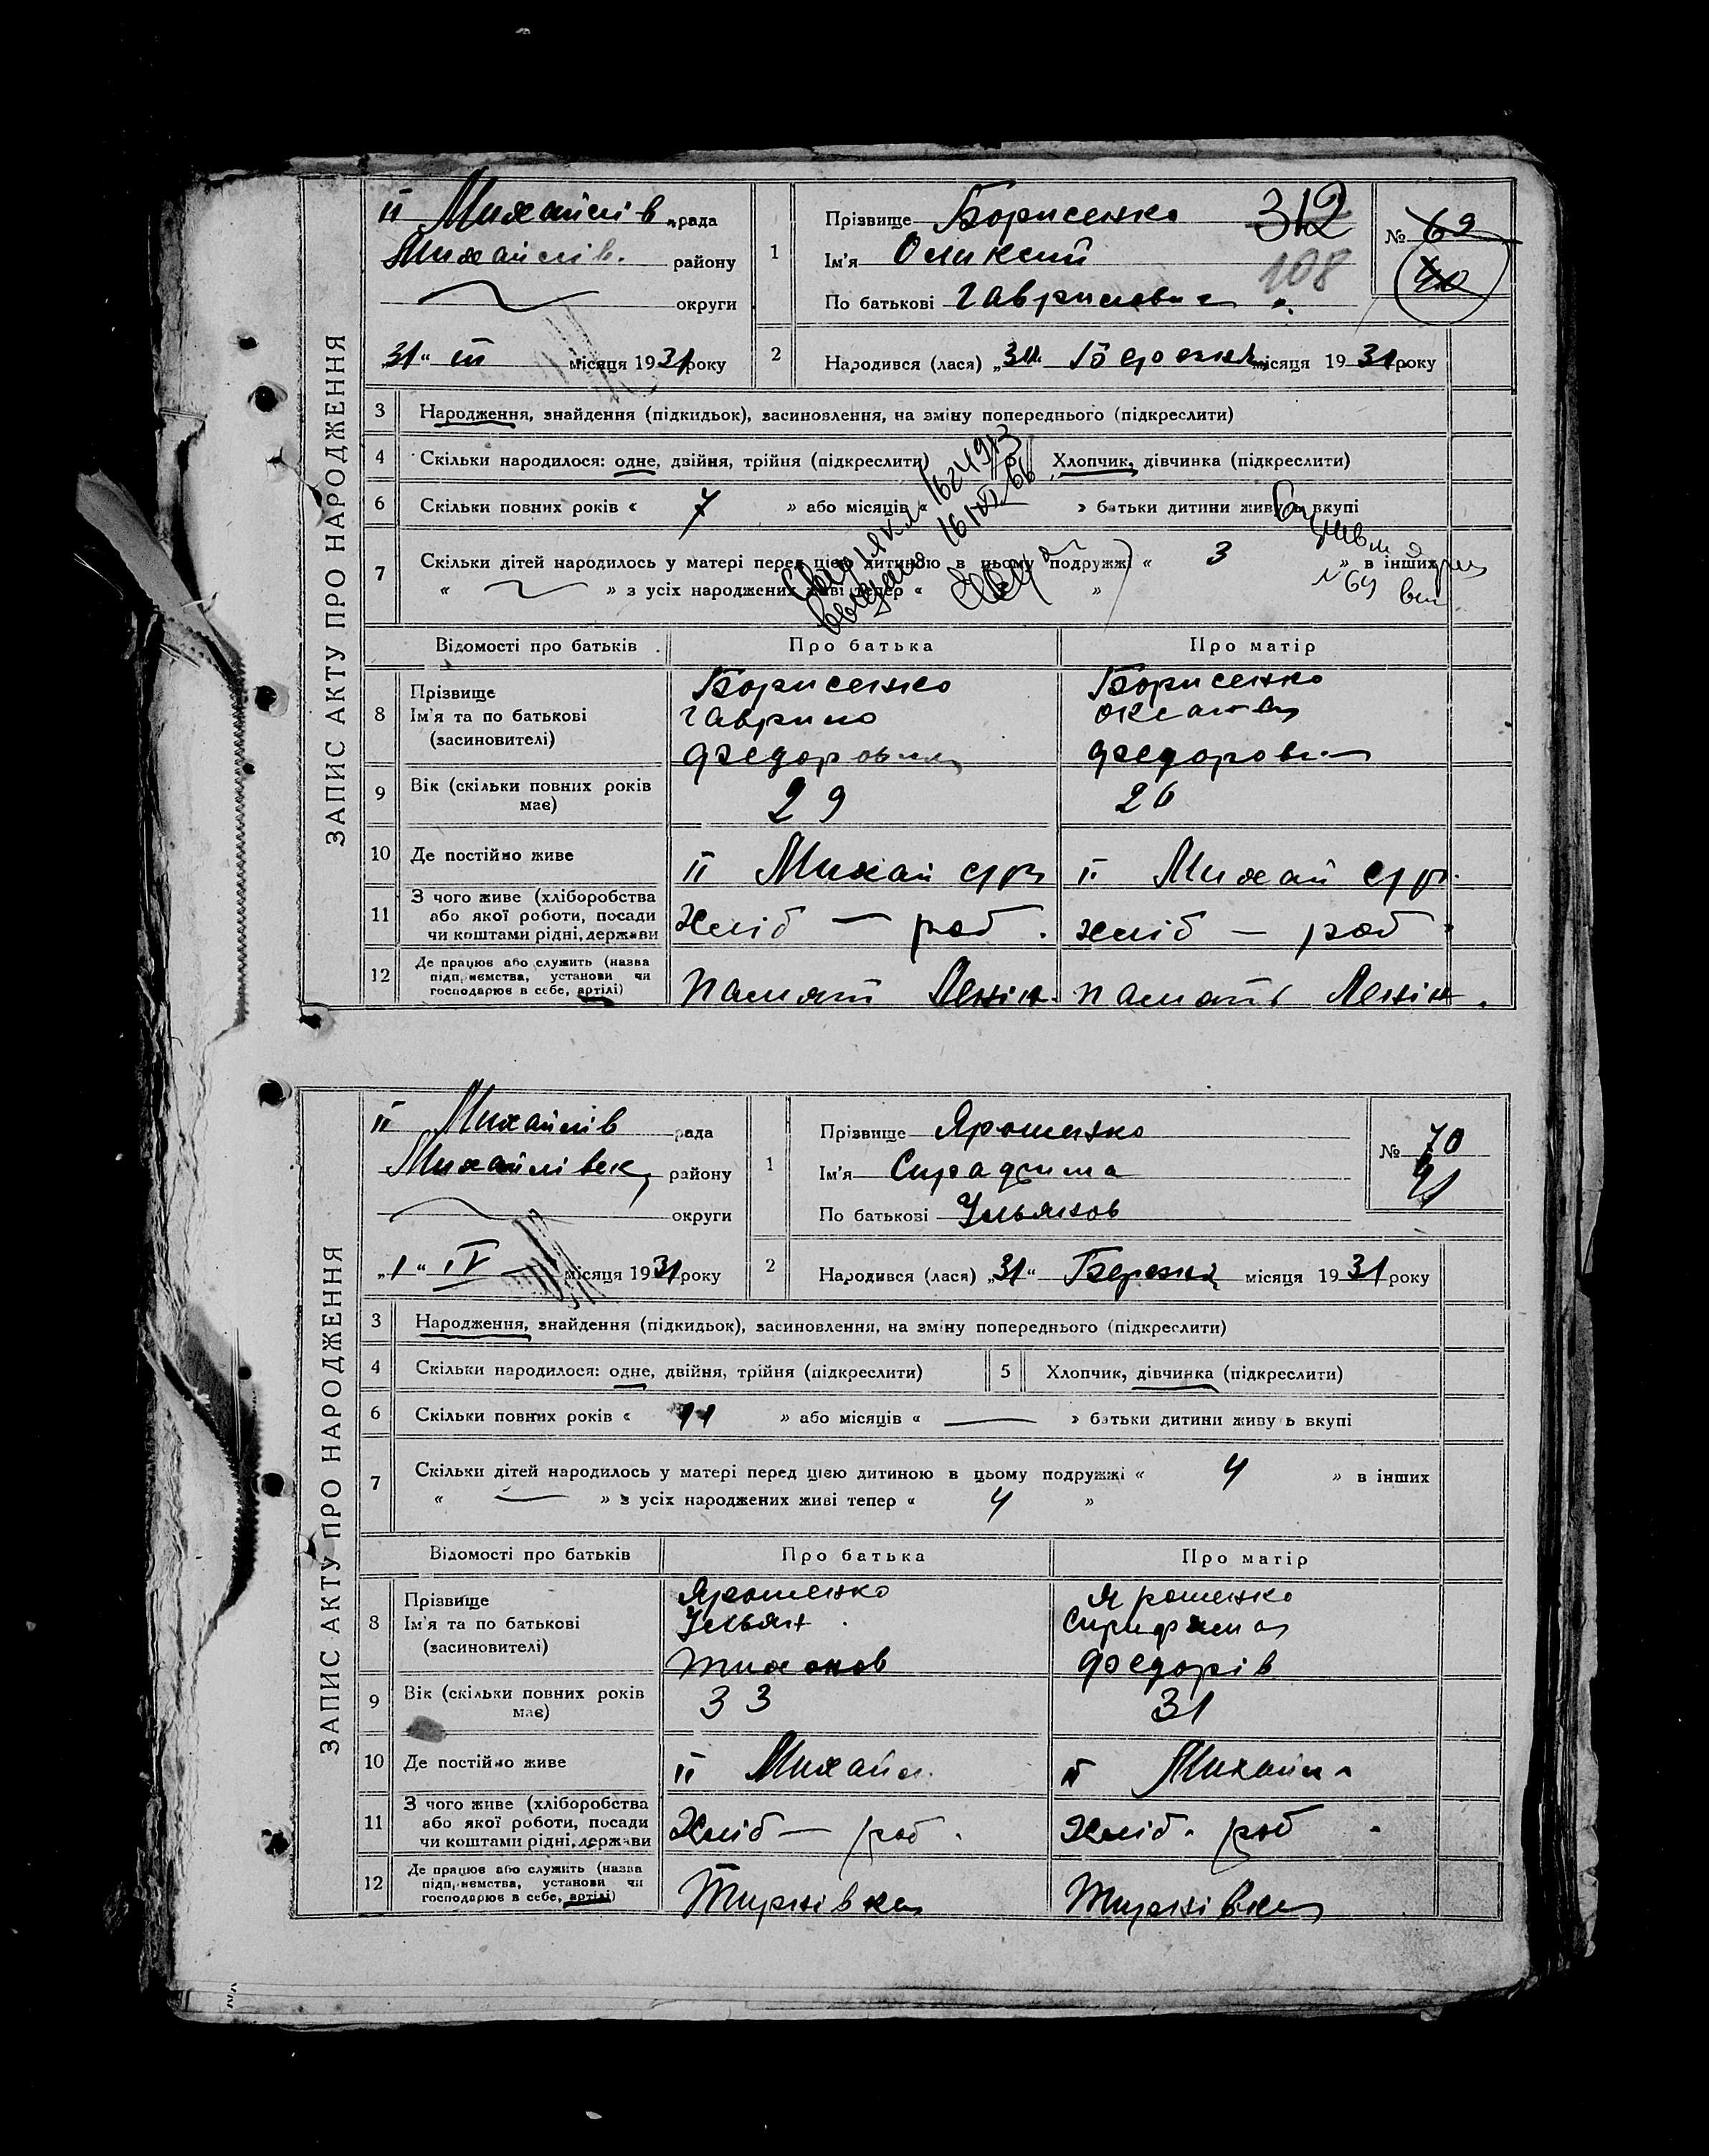 ЗАПИС АКТУ ПРО НАРОДЖЕННЯ
ІІ Михайлів рада
Михайлів. району
округи
„31“ ІІІ місяця 1931 року
1
Прізвище Борисенко 312
Ім'я Оликсий
108
По батькові Гаврилович
№ 69
40
2 Народився (лася) „31“ Березня місяця 1931 року
3 Народження, знайдення (підкидьок), засиновлення, на зміну попереднього (підкреслити)
4 Скільки народилося: одне, двійня, трійня (підкреслити) Хлопчик, дівчинка (підкреслити)
6 Скільки повних років « 7 » або місяців « » батьки дитини живуть вкупі
7 Скільки дітей народилось у матері перед цією дитиною в цьому подружжі « 3 » в інших
« » з усіх народжених живі тепер « »
1624913
№ 69
Відомості про батьків Про батька Про матір
8 Прізвище Борисенко Борисенко
Ім'я та по батькові Гаврило
(засиновителі) Федорович Федоров
9 Вік (скільки повних років має) 29 26
10 Де постійно живе ІІ Михай ІІ Михай
11 З чого живе (хліборобства або якої роботи, посади чи коштами рідні, держави Хліб — роб. хліб — роб.
12 Де працює або служить (назва підприємства, установи чи господарює в себе, артілі) Памяті Ленін. Памяті Ленін.
ЗАПИС АКТУ ПРО НАРОДЖЕННЯ
ІІ Михайлів рада
Михайлівськ району
округи
„1“ ІV місяця 1931 року
1
Прізвище Ярошенко
Ім'я Сирафима
По батькові Ульянов
№ 70
41
2 Народився (лася) „31“ Березня місяця 1931 року
3 Народження, знайдення (підкидьок), засиновлення, на зміну попереднього (підкреслити)
4 Скільки народилося: одне, двійня, трійня (підкреслити) 5 Хлопчик, дівчинка (підкреслити)
6 Скільки повних років « 11 » або місяців « — » батьки дитини живуь вкупі
7 Скільки дітей народилось у матері перед цією дитиною в цьому подружжі « 4 » в інших
« — » з усіх народжених живі тепер « 4 »
Відомості про батьків Про батька Про матір
8 Прізвище Ярошенко Ярошенко
Ім'я та по батькові Ульян Сирафима
(засиновителі) Тихонов Федорів
9 Вік (скільки повних років має) 33 31
10 Де постійно живе ІІ Михайл. ІІ Михайл
11 З чого живе (хліборобства або якої роботи, посади чи коштами рідні, держави Хліб — роб. Хліб. роб
12 Де працює або служить (назва підприємства, установи чи господарює в себе, артілі) Тирнівка Тирнівка